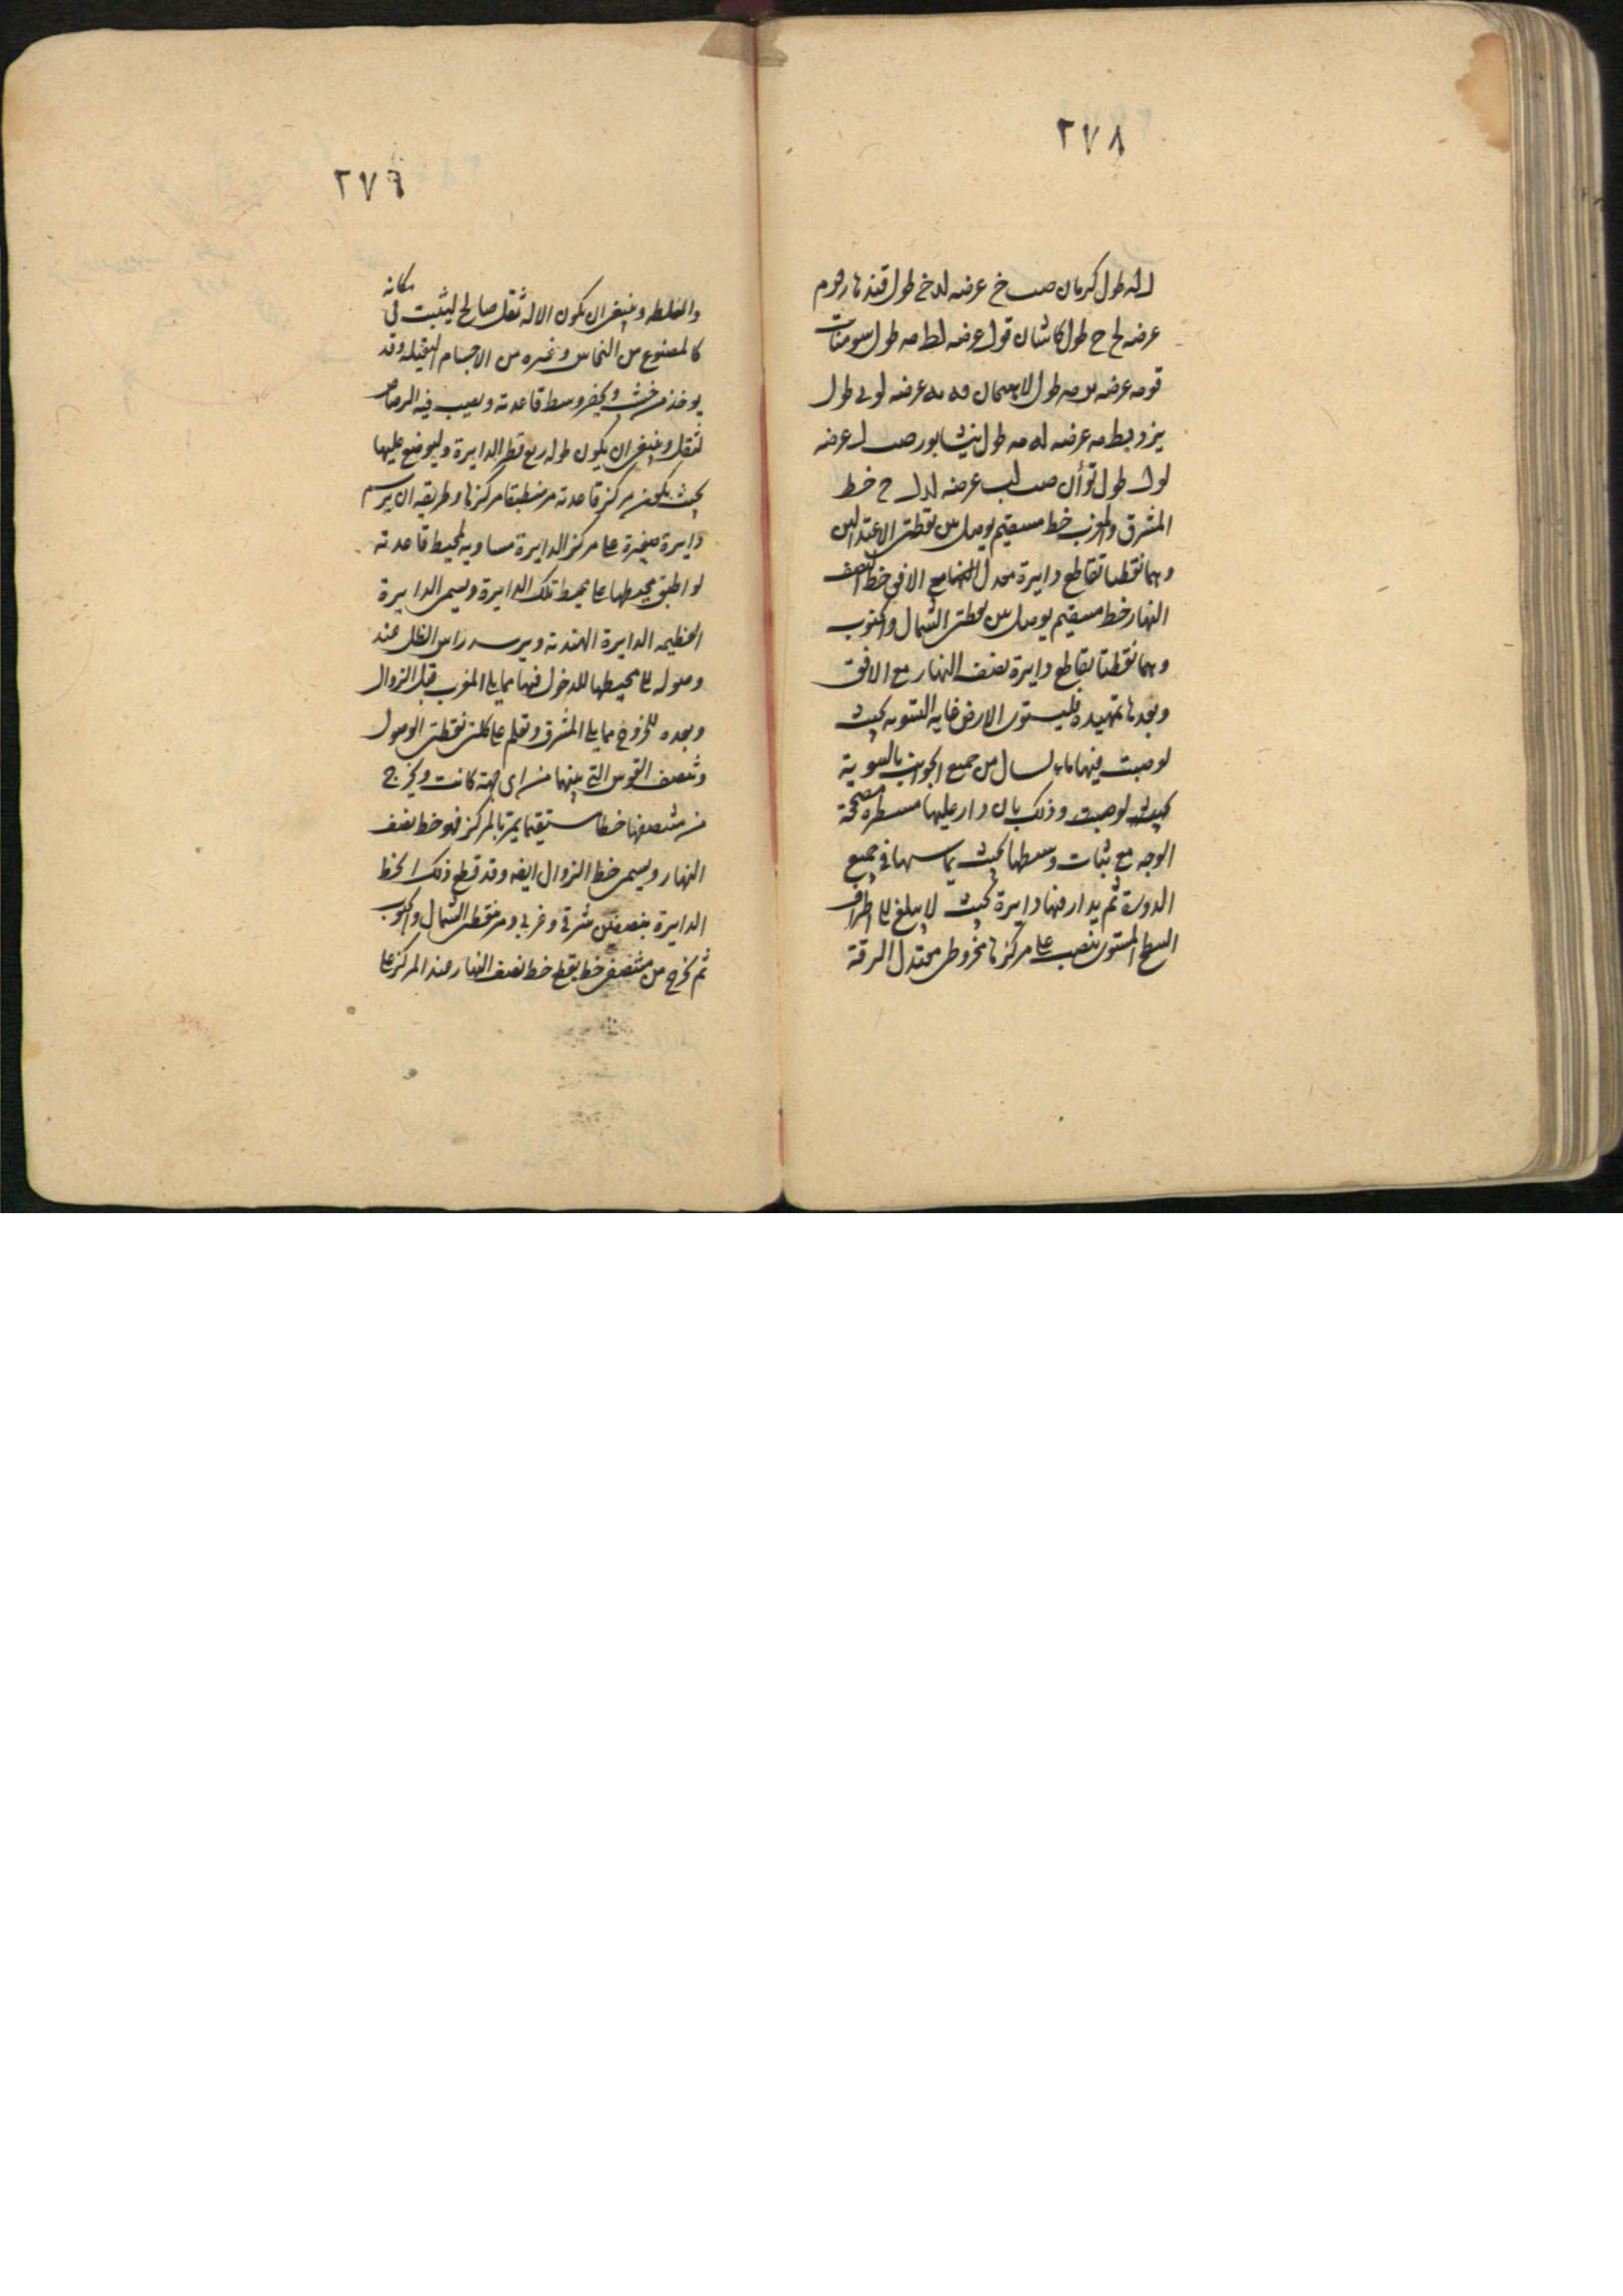 ٢٧٨
طول كرمان صب خ عرضه لد خ طول قندهار قوم
عرضه لح ح طول كاشان قول عرضه لط مه طول سومنات
قومه عرضه مه طول عرضه طول
يزد بط مه عرضه له مه طول نيشابور صب ل عرضه
لو طول تو أن صب لب عرضه ح خط
المشرق والمغرب خط مستقيم يوصل بين نقطتى الاعتدالين
وهما نقطتا تقاطع دايرة معدل النهار مع الافق خط نصف
النهار خط مستقيم يوصل بين نقطتى الشمال والجنوب
وهما نقطتا تقاطع دايرة نصف النهار مع الافق
وبعد ها تمهيده فليستوى الارض غاية التسوية بحيث
لو صبت فيها ماء لسال من جميع الجوانب بالسوية
لو صبت وذلك بان دار عليها مسطرة مصححة
الوجه مع ثبات وسطها بحيث يماسها فى جميع
الدورة ثم يدار فيها دايرة بحيث لا يبلغ الى اطراف
السطح المستوى ينصب على مركزها مخروطى معتدل الرقة
٢٧٩
والغلظه وينبغى ان يكون الاله ثقل صالح ليثبت فى مكانه
كالمصنوع من النحاس وغيره من الاجسام الثقيله وقد
يوخذ من خشب ويحفر وسط قاعدته ويصب فيه الرصاص
لثقل وينبغى ان يكون طوله ربع قطر الدايرة وليوضع عليها
بحيث يكون مركز قاعدته منطبقا مركزها وطريقه ان يرسم
دايرة صغيرة على مركز الدايرة مساوية لمحيط قاعدته
لو اطبق محيطها على محيط تلك الدايرة ويسمى الدايرة
العظيمه الدايرة الهندية ويرسد راس الظل عند
وصوله الى محيطها للدخول فيها مما يلى المغرب قبل الزوال
وبعده للخروج مما يلى المشرق وتعلم على كلتى نقطتى الوصول
وتنصف القوس التى بينهما من اى جهة كانت ويخرج
من منتصفها خطا مستقيما يمر بالمركز فهو خط نصف
النهار ويسمى خط الزوال ايضه وقد قطع ذلك الخط
الدايرة بنصفين شرقى وغربى ومر نقطتى الشمال والجنوب
ثم يخرج من منتصفى خط يقطع خط نصف النهار عند المركز على